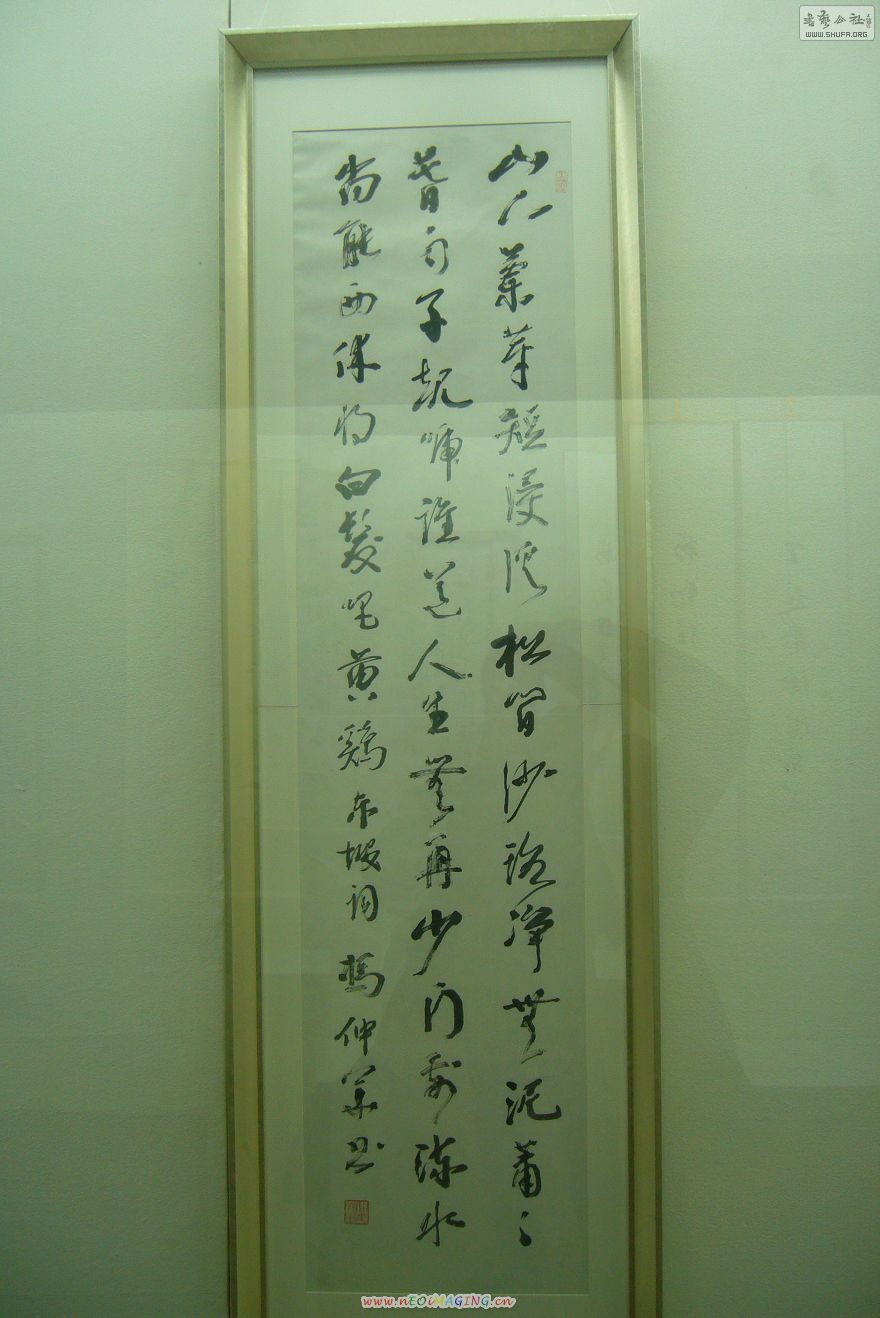 書藝公社
WWW.SHUFA.ORG
山下蘭芽短浸溪松間沙路淨無泥蕭〻
暮雨子規啼誰道人生無再少門前流水
尚能西休將白髮唱黃鷄東坡詞 仲書
www.nEOiMAGING.cn